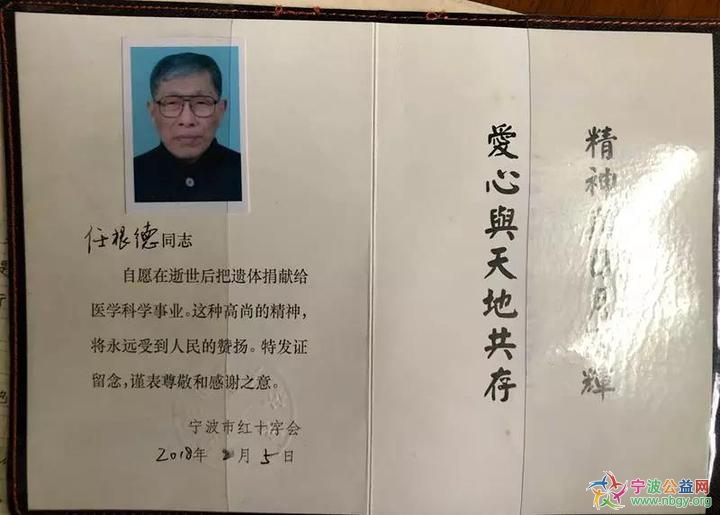 任根德同志
自愿在逝世后把遗体捐献给
医学科学事业。这种高尚的精神，
将永远受到人民的赞扬。特发证
留念，谨表尊敬和感谢之意。
宁波市红十字会
2018年2月5日
精神 日月 輝
愛心與天地共存
宁波公益网
www.nbgy.org